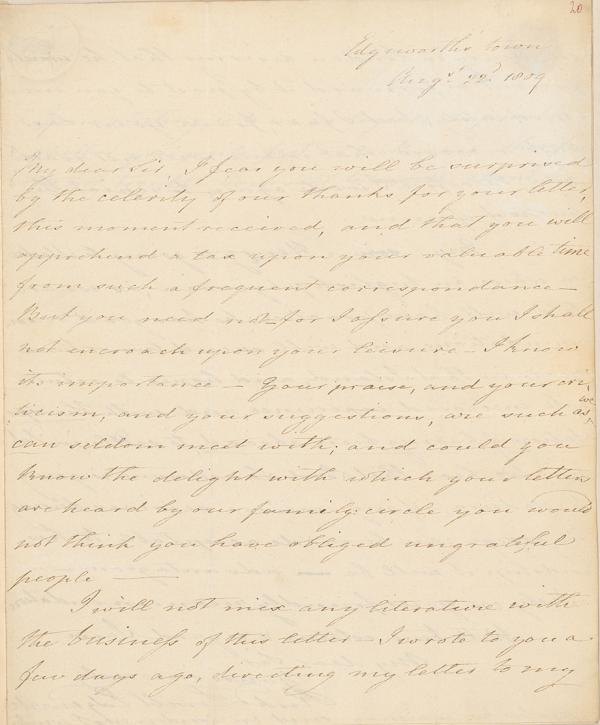 20
Edgeworth's town
Augst 22d 1809
My dear Sir, I fear you will be surprised
by the celerity of our thanks for your letter,
this moment received, and that you will
apprehend a tax upon your valuable time
from such a frequent correspondance—
But you need not—for I assure you I shall
not encroach upon your leisure—I know
its importance — Your praise, and your cri-
ticism, and your suggestions, are such as we
can seldom meet with; and could you
know the delight with which your letters
are heard by our family circle you would
not think you have obliged ungrateful
people —
I will not mix any literature with
the business of this letter—I wrote to you a
few days ago, directing my letter to my